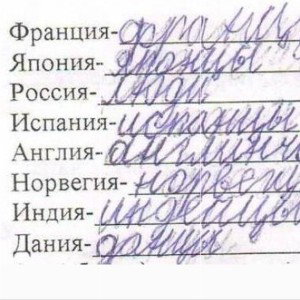 Франция- франц
Япония- японцы
Россия- люди
Испания- испанцы
Англия- англичи
Норвегия- норвегц
Индия- индейцы
Дания- данцы